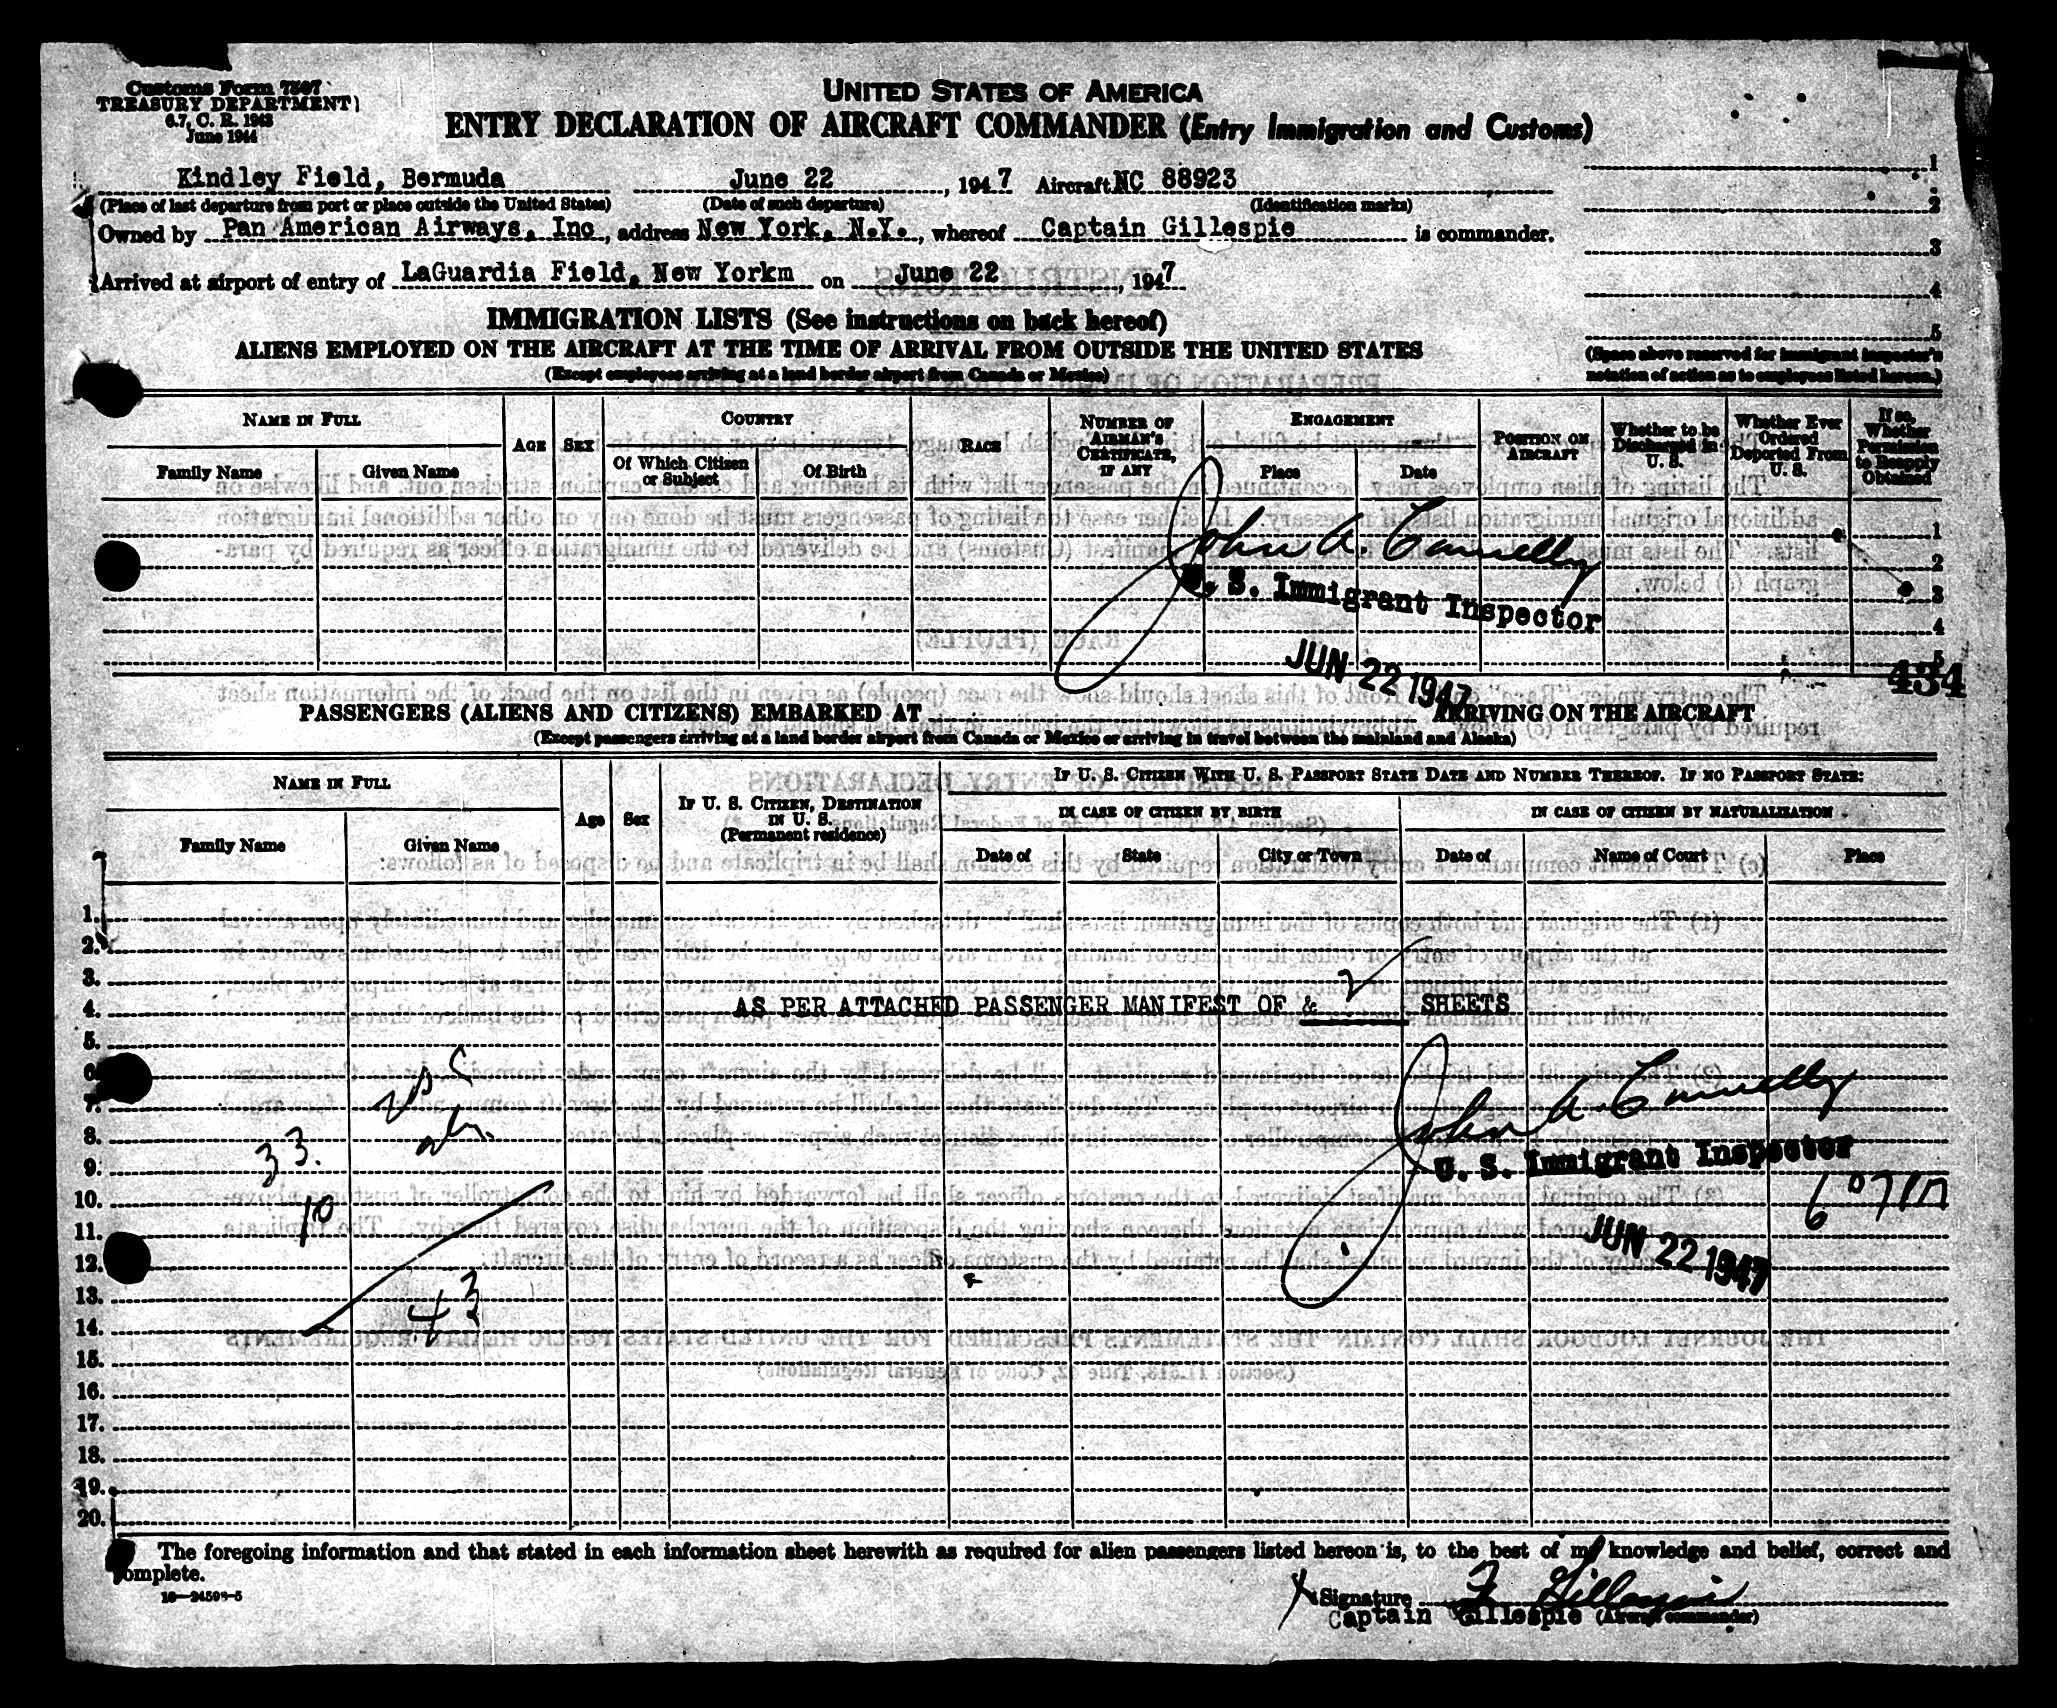 Customs Form 7507
TREASURY DEPARTMENT
6.7, C. R. 1943
June 1944
UNITED STATES OF AMERICA
ENTRY DECLARATION OF AIRCRAFT COMMANDER (Entry Immigration and Customs)
Kindley Field, Bermuda June 22, 1947 Aircraft NC 88923
(Place of last departure from port or place outside the United States) (Date of such departure) (Identification marks)
Owned by Pan American Airways, Inc, address New York, N.Y., whereof Captain Gillespie is commander.
Arrived at airport of entry of LaGuardia Field, New Yorkm on June 22, 1947
1
2
3
4
5
(Space above reserved for immigrant inspector's
notation of action as to employees listed hereon.)
IMMIGRATION LISTS (See instructions on back hereof)
ALIENS EMPLOYED ON THE AIRCRAFT AT THE TIME OF ARRIVAL FROM OUTSIDE THE UNITED STATES
(Except employees arriving at a land border airport from Canada or Mexico)
NAME IN FULL
Family Name
Given Name
AGE
SEX
COUNTRY
Of Which Citizen
or Subject
Of Birth
RACE
NUMBER OF
AIRMAN'S
CERTIFICATE,
IF ANY
ENGAGEMENT
Place
Date
POSITION ON
AIRCRAFT
Whether to be
Discharged in
U. S.
Whether Ever
Ordered
Deported From
U. S.
If so,
Whether
Permission
to Reapply
Obtained
1
2
3
4
5
John A. Connelly
U. S. Immigrant Inspector
JUN 22 1947
434
PASSENGERS (ALIENS AND CITIZENS) EMBARKED AT ARRIVING ON THE AIRCRAFT
(Except passengers arriving at a land border airport from Canada or Mexico or arriving in travel between the mainland and Alaska)
NAME IN FULL
Family Name
Given Name
Age
Sex
IF U. S. CITIZEN, DESTINATION
IN U. S.
(Permanent residence)
IF U. S. CITIZEN WITH U. S. PASSPORT STATE DATE AND NUMBER THEREOF. IF NO PASSPORT STATE:
IN CASE OF CITIZEN BY BIRTH
IN CASE OF CITIZEN BY NATURALIZATION
Date of
State
City or Town
Date of
Name of Court
Place
1.
2.
3.
4.
5.
6.
7.
8.
9.
10.
11.
12.
13.
14.
15.
16.
17.
18.
19.
20.
AS PER ATTACHED PASSENGER MANIFEST OF & 2 SHEETS
USC
33.
10
43
John A. Connelly
U. S. Immigrant Inspector
JUN 22 1947
The foregoing information and that stated in each information sheet herewith as required for alien passengers listed hereon is, to the best of my knowledge and belief, correct and
complete.
16—24598-5
Signature F Gillespie
Captain Gillespie (Aircraft commander)